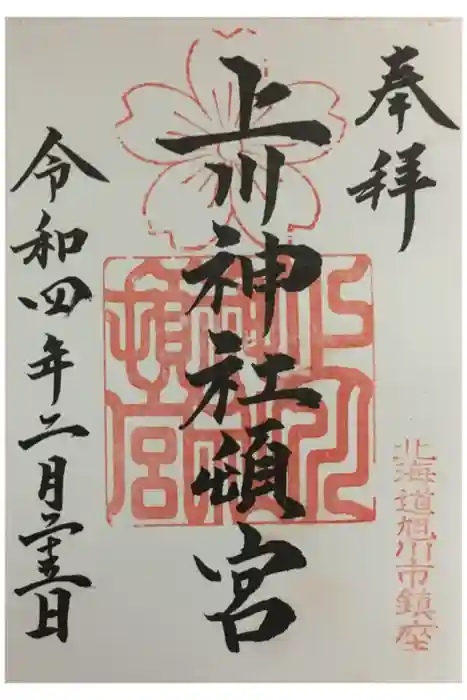 奉拝
北海道旭川市鎮座
上川神社頓宮
上川
神社
頓宮
令和四年二月二十三日